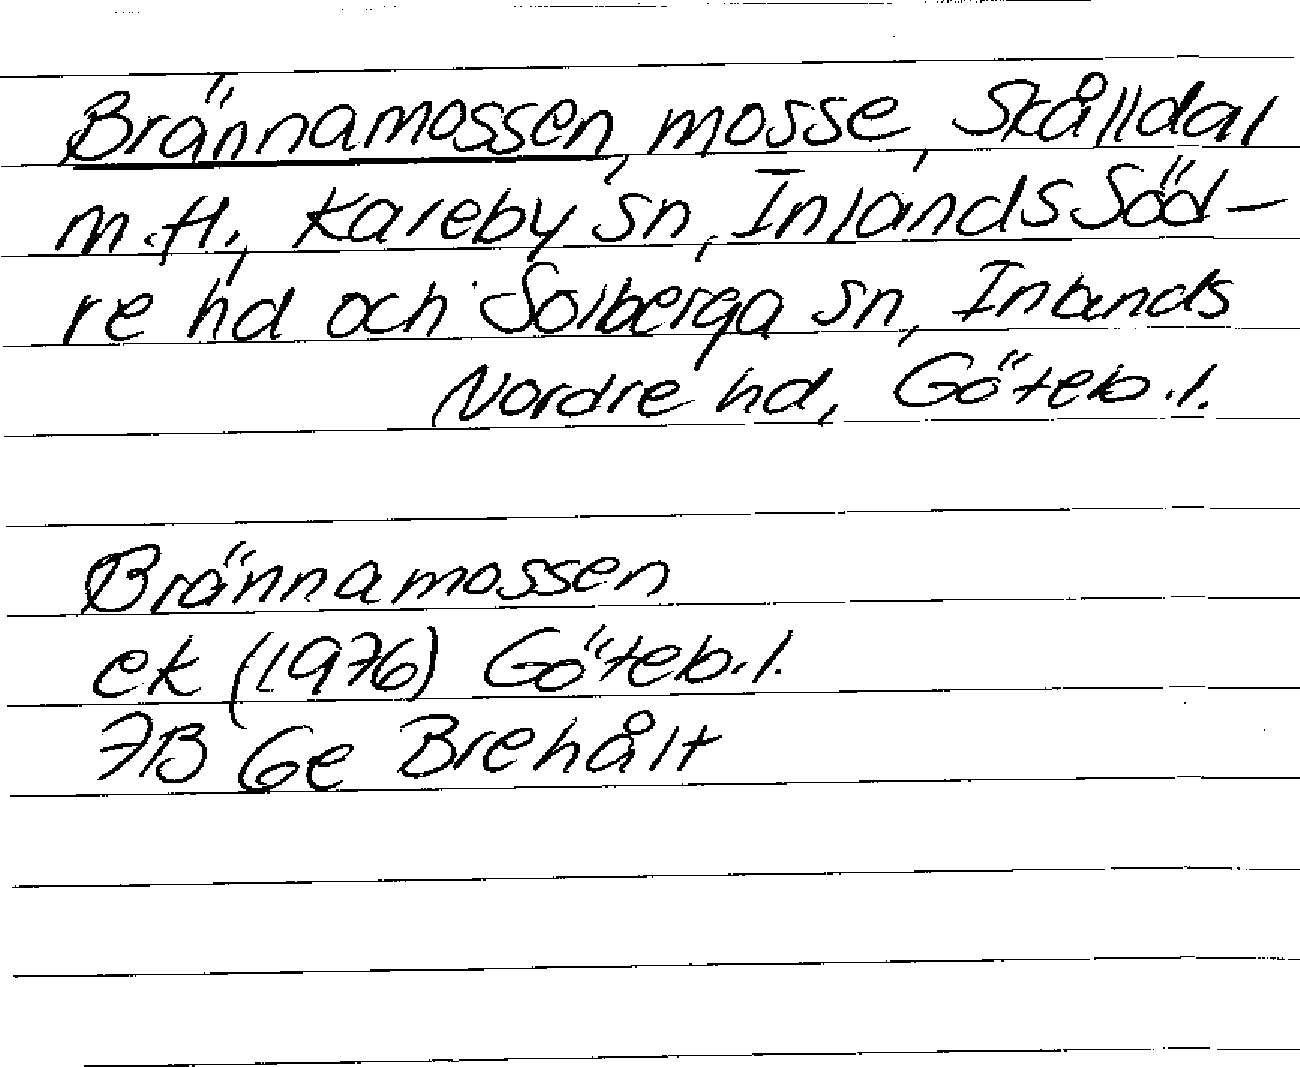 Brännamossen, mosse, Skålldal
m.fl., Kareby sn, Inlands Söd-
re hd och Solberga sn, Inlands
Nordre hd, Göteb.l.
Brännamossen
ek (1976) Göteb.l.
7B 6e Brehålt